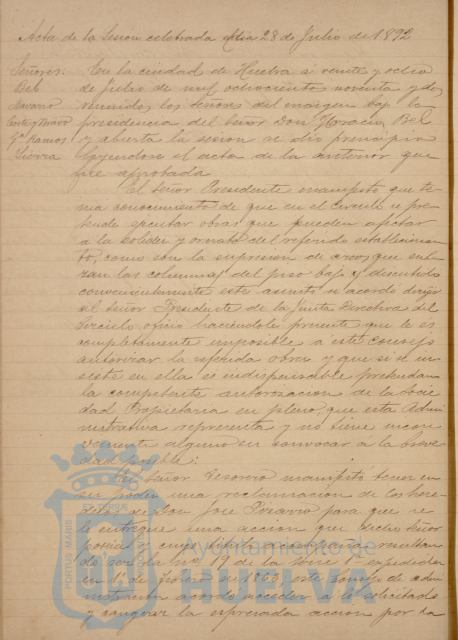 Acta de la Sesion celebrada el dia 28 de Julio de 1892
Señores:
Bel
Navarro
Corte y Bravo
Gª Ramos
Sierra
En la ciudad de Huelva á veinte y ocho
de julio de mil ochociento noventa y dos,
reunidos los Señores del margen bajo la
presidencia del Señor Don Horacio Bel
y abierta la sesion se dió principio
leyendose el acta de la anterior que
fue aprobada
El Señor Presidente manifestó que te-
nia conocimiento de que en el Circulo se pre-
tende ejecutar obras que pueden afectar
a la solidez y ornato del referido establecimien-
to, como son la supresion de arcos que enla-
zan las columnas del piso bajo y discutido
convenientemente este asunto se acordó dirigir
al Señor Presidente de la Junta Directiva del
Circulo oficio haciendole presente que le es
completamente imposible á este consejo
autorizar la referida obra y que si se in-
siste en ella es indispensable pretendan
la competente autorizacion de la Socie-
dad Propietaria en pleno, que esta Admi-
nistrativa representa y no tiene incon-
veniente alguno en convocar á la breve-
dad posible.
El Señor Tesorero manifestó tener en
su poder una reclamacion de los here-
deros de Don José Pizarro para que se
le entregue una accion que dicho Señor
poseia y cuyo resultan-
do ser la nº 19 de la Serie expedida
en 1º de de 1866, este Consejo de adm-
inistracion acordó acceder á lo solicitado
y la espresada accion por
Ayuntamiento de
HUELVA
PORTUS MARIS